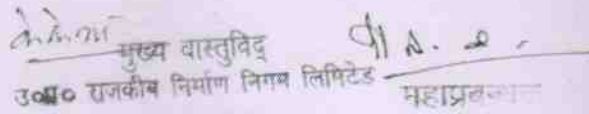 मुख्य वास्तुविद्
उ०प्र० राजकीय निर्माण निगम लिमिटेड
महाप्रबन्धक